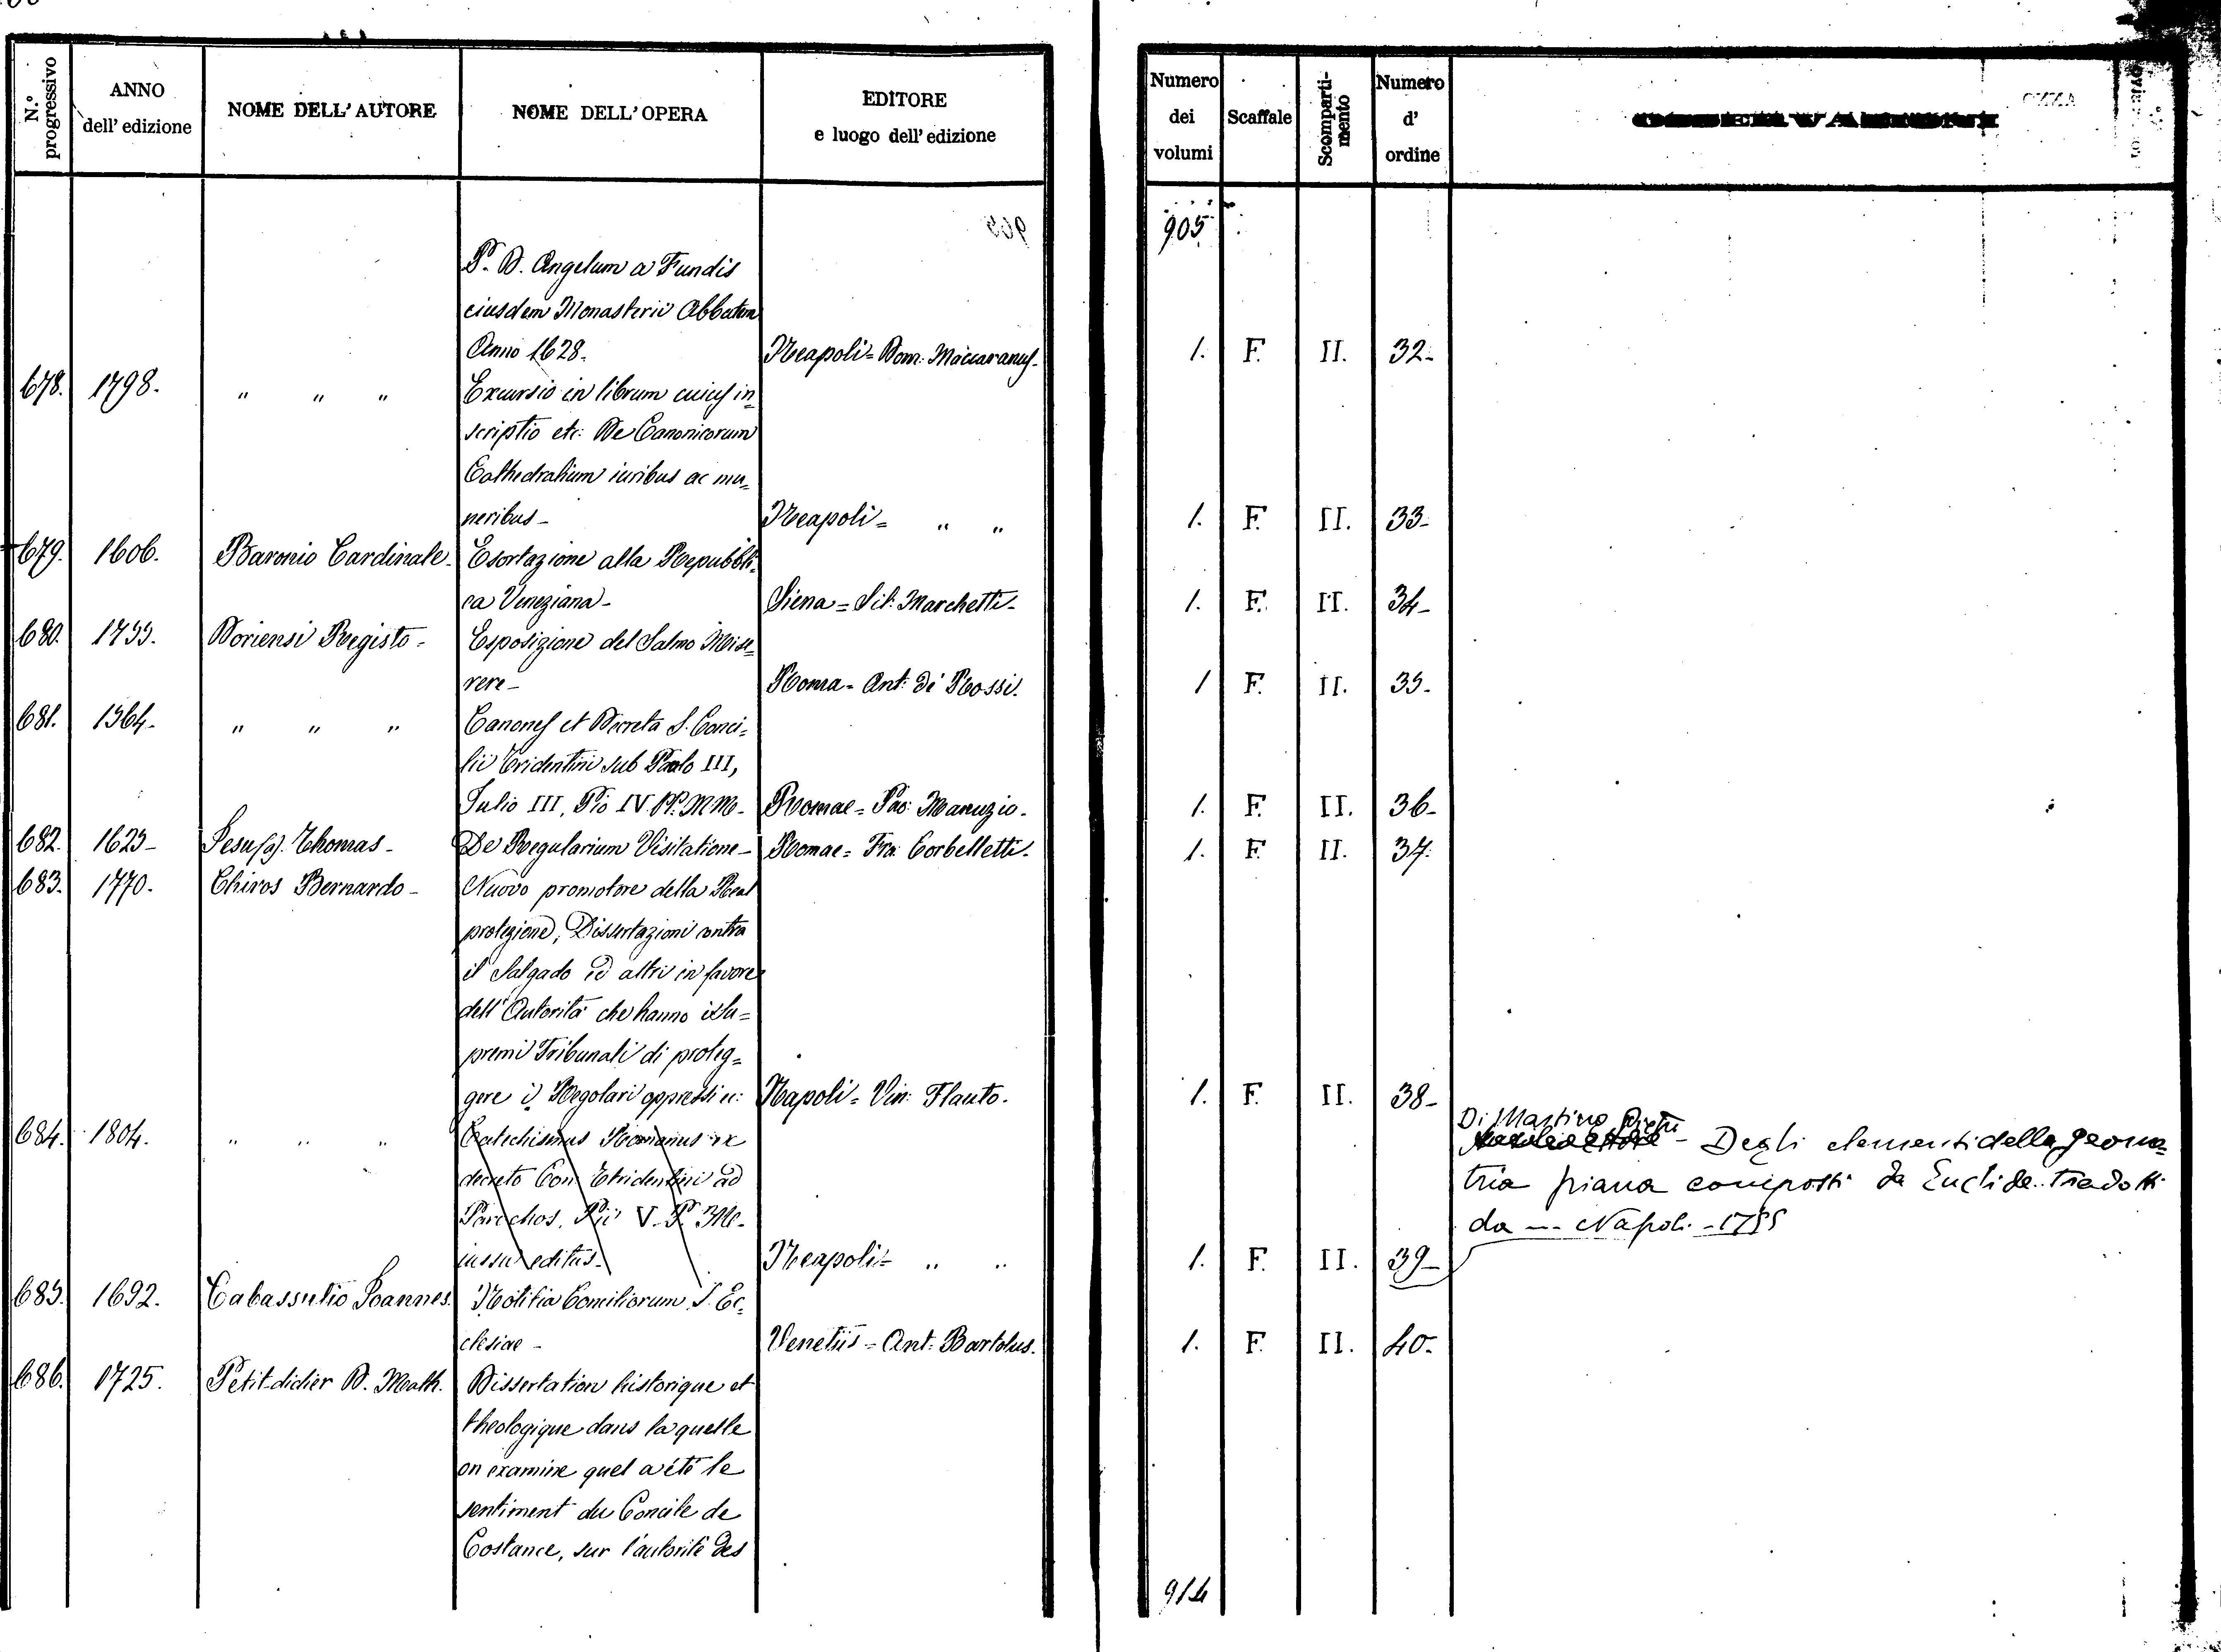 N.° progressivo | ANNO dell' edizione | NOME DELL' AUTORE | NOME DELL' OPERA | EDITORE e luogo dell' edizione | Numero dei volumi | Scaffale | Scomparti-mento | Numero d' ordine
905
P. D. Angelum a Fundis
eiusdem Monasterii Abbatem
Anno 1628. | Neapoli = Dom: Maccaranus. | 1. | F. | II. | 32-
678. | 1798. | " " " | Excursio in librum cuius in=
scriptio etc: De Canonicorum
Cathedralium iuribus ac mu=
neribus - | Neapoli = " " | 1. | F. | II. | 33-
679. | 1606. | Baronio Cardinale. | Esortazione alla Repubbli=
ca Veneziana - | Siena = Sil: Marchetti - | 1. | F. | II. | 34-
680. | 1755. | Doriensi Registo - | Esposizione del Salmo Mise=
rere - | Roma = Ant: de' Rossi. | 1 | F. | II. | 35.
681. | 1564. | " " " | Canones et Decreta S. Conci=
lii Tridentini sub Paolo III,
Julio III, Pio IV. PP. MM. | Romae = Pao: Manuzio. | 1. | F. | II. | 36-
682. | 1625- | Jesu (a). Thomas - | De Regularium Visitatione - | Romae = Fra: Corbelletti. | 1. | F. | II. | 37.
683. | 1770. | Chiros Bernardo - | Nuovo promotore della Real
protezione, Dissertazioni contra
il Salgado ed altri in favore
dell' Autorità che hanno i Su=
premi Tribunali di proteg=
gere i Regolari oppressi ec: | Napoli = Vin: Flauto. | 1. | F. | II. | 38-
684. | 1804. | " " " | Catechismus Romanus ex
decreto Con: Tridentini ad
Parochos, Pii V. P. M.
iussu editus - | Neapoli = " " | 1. | F. | II. | 39-
Di Martino - Degli elementi della geome=
tria piana composti da Euclide. Tradotti
da --- Napoli - 1755
685. | 1692. | Cabassutio Joannes. | Notitia Conciliorum S. Ec=
clesiae - | Venetiis = Ant: Bartolus. | 1. | F. | II. | 40.
686. | 1725. | Petit-didier D. Math. | Dissertation historique et
theologique dans la quelle
on examine quel a été le
sentiment du Concile de
Costance, sur l'autorité des
914